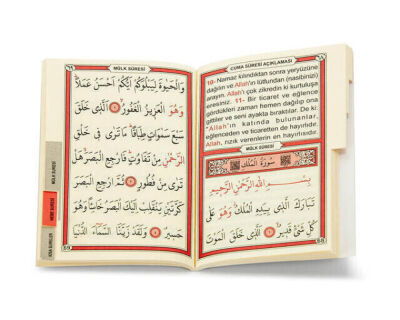 CUMA SÛRESİ AÇIKLAMASI
10- Namaz kılındıktan sonra yeryüzüne
dağılın ve Allah'ın lütfundan (nasibinizi)
arayın, Allah'ı çok zikredin ki kurtuluşa
eresiniz. 11- Bir ticaret ve eğlence
gördükleri zaman hemen dağılıp ona
gittiler ve seni ayakta bıraktılar. De ki:
"Allah'ın katında bulunanlar,
eğlenceden ve ticaretten de hayırlıdır.
Allah, rızık verenlerin en hayırlısıdır.
MÜLK SURESİ
سُورَةُ الْمُلْكِ
بِسْمِ اللّٰهِ الرَّحْمٰنِ الرَّحِيمِ
تَبَارَكَ الَّذِي بِيَدِهِ الْمُلْكُ وَهُوَ عَلٰى
كُلِّ شَيْءٍ قَدِيرٌ الَّذِي خَلَقَ الْمَوْتَ
MÜLK SÛRESİ
وَالْحَيٰوةَ لِيَبْلُوَكُمْ اَيُّكُمْ اَحْسَنُ عَمَلًا
وَهُوَ الْعَزِيزُ الْغَفُورُ الَّذِي خَلَقَ
سَبْعَ سَمٰوَاتٍ طِبَاقًا مَا تَرٰى فِي خَلْقِ
الرَّحْمٰنِ مِنْ تَفَاوُتٍ فَارْجِعِ الْبَصَرَ هَلْ
تَرٰى مِنْ فُطُورٍ ثُمَّ ارْجِعِ الْبَصَرَ
كَرَّتَيْنِ يَنْقَلِبْ اِلَيْكَ الْبَصَرُ خَاسِئًا وَهُوَ
حَسِيرٌ وَلَقَدْ زَيَّنَّا السَّمَاءَ الدُّنْيَا
MÜLK SURESİ
NEBE SURESİ
KISA SURELER